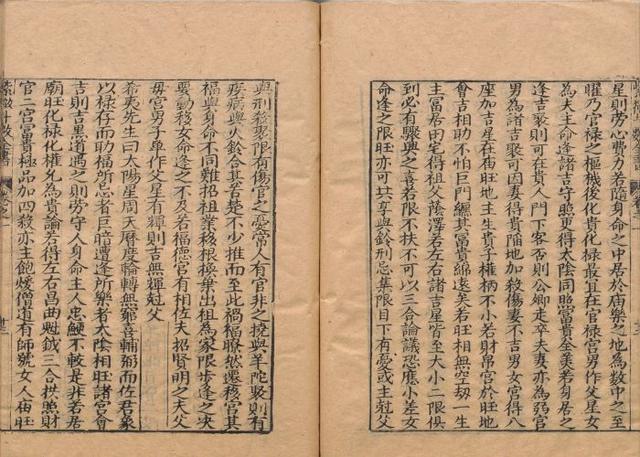 星則勞心費力若隨身命之中居於庙樂之地為数中之至
曜乃官祿之樞機後化貴化祿最宜在官祿宮男作父星女
為夫主命逢諸吉守照更得太陰同照富貴全美若身居之
逢吉聚則可在貴人門下客否則公卿走卒夫妻亦為弱宮
男為諸吉聚可因妻得貴陷地加殺傷妻不吉男女宮得八
座加吉星在庙旺地主生貴子權柄不小若財帛宮於旺地
會吉相助不怕巨門纏其富貴綿遠矣若旺相無空劫一生
主富居田宅得祖父蔭澤若左右諸吉星皆至大小二限俱
到必有驟興之喜若限不扶不可以三合論議恐應小差女
命逢之限旺亦可共享與鈴刑忌集限目下有憂或主剋父
與刑殺聚限有傷官之憂常人有官非之撓與羊陀聚則有
疾病與火鈴合其苦楚不少推而至此禍福瞭然遷移宮其
福與身命不同難招祖業移根換葉出祖為家限步逢之决
要動移女命逢之不及若福德宮有相佐夫招賢明之夫父
毋宮男子单作父星有輝則吉無輝剋父
希夷先生曰太陽星周天曆度輪轉無窮喜輔弼而佐君象
以祿存而助福所忌者巨暗遭逢所樂者太陰相旺諸宮會
吉則吉黑道遇之則勞守人身命主人忠鯁不較是非若居
廟旺化祿化權允為貴論若得左右昌曲魁鉞三合拱照財
官二宮富貴極品加四殺亦主飽煖僧道有師號女人庙旺
紫微斗数全書 卷之一 廿三